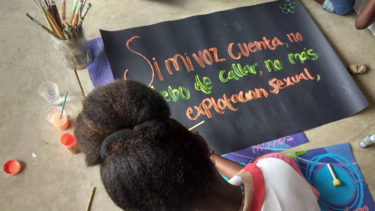 Si mi voz cuenta, no
ebo de callar, no más
explotación sexual,